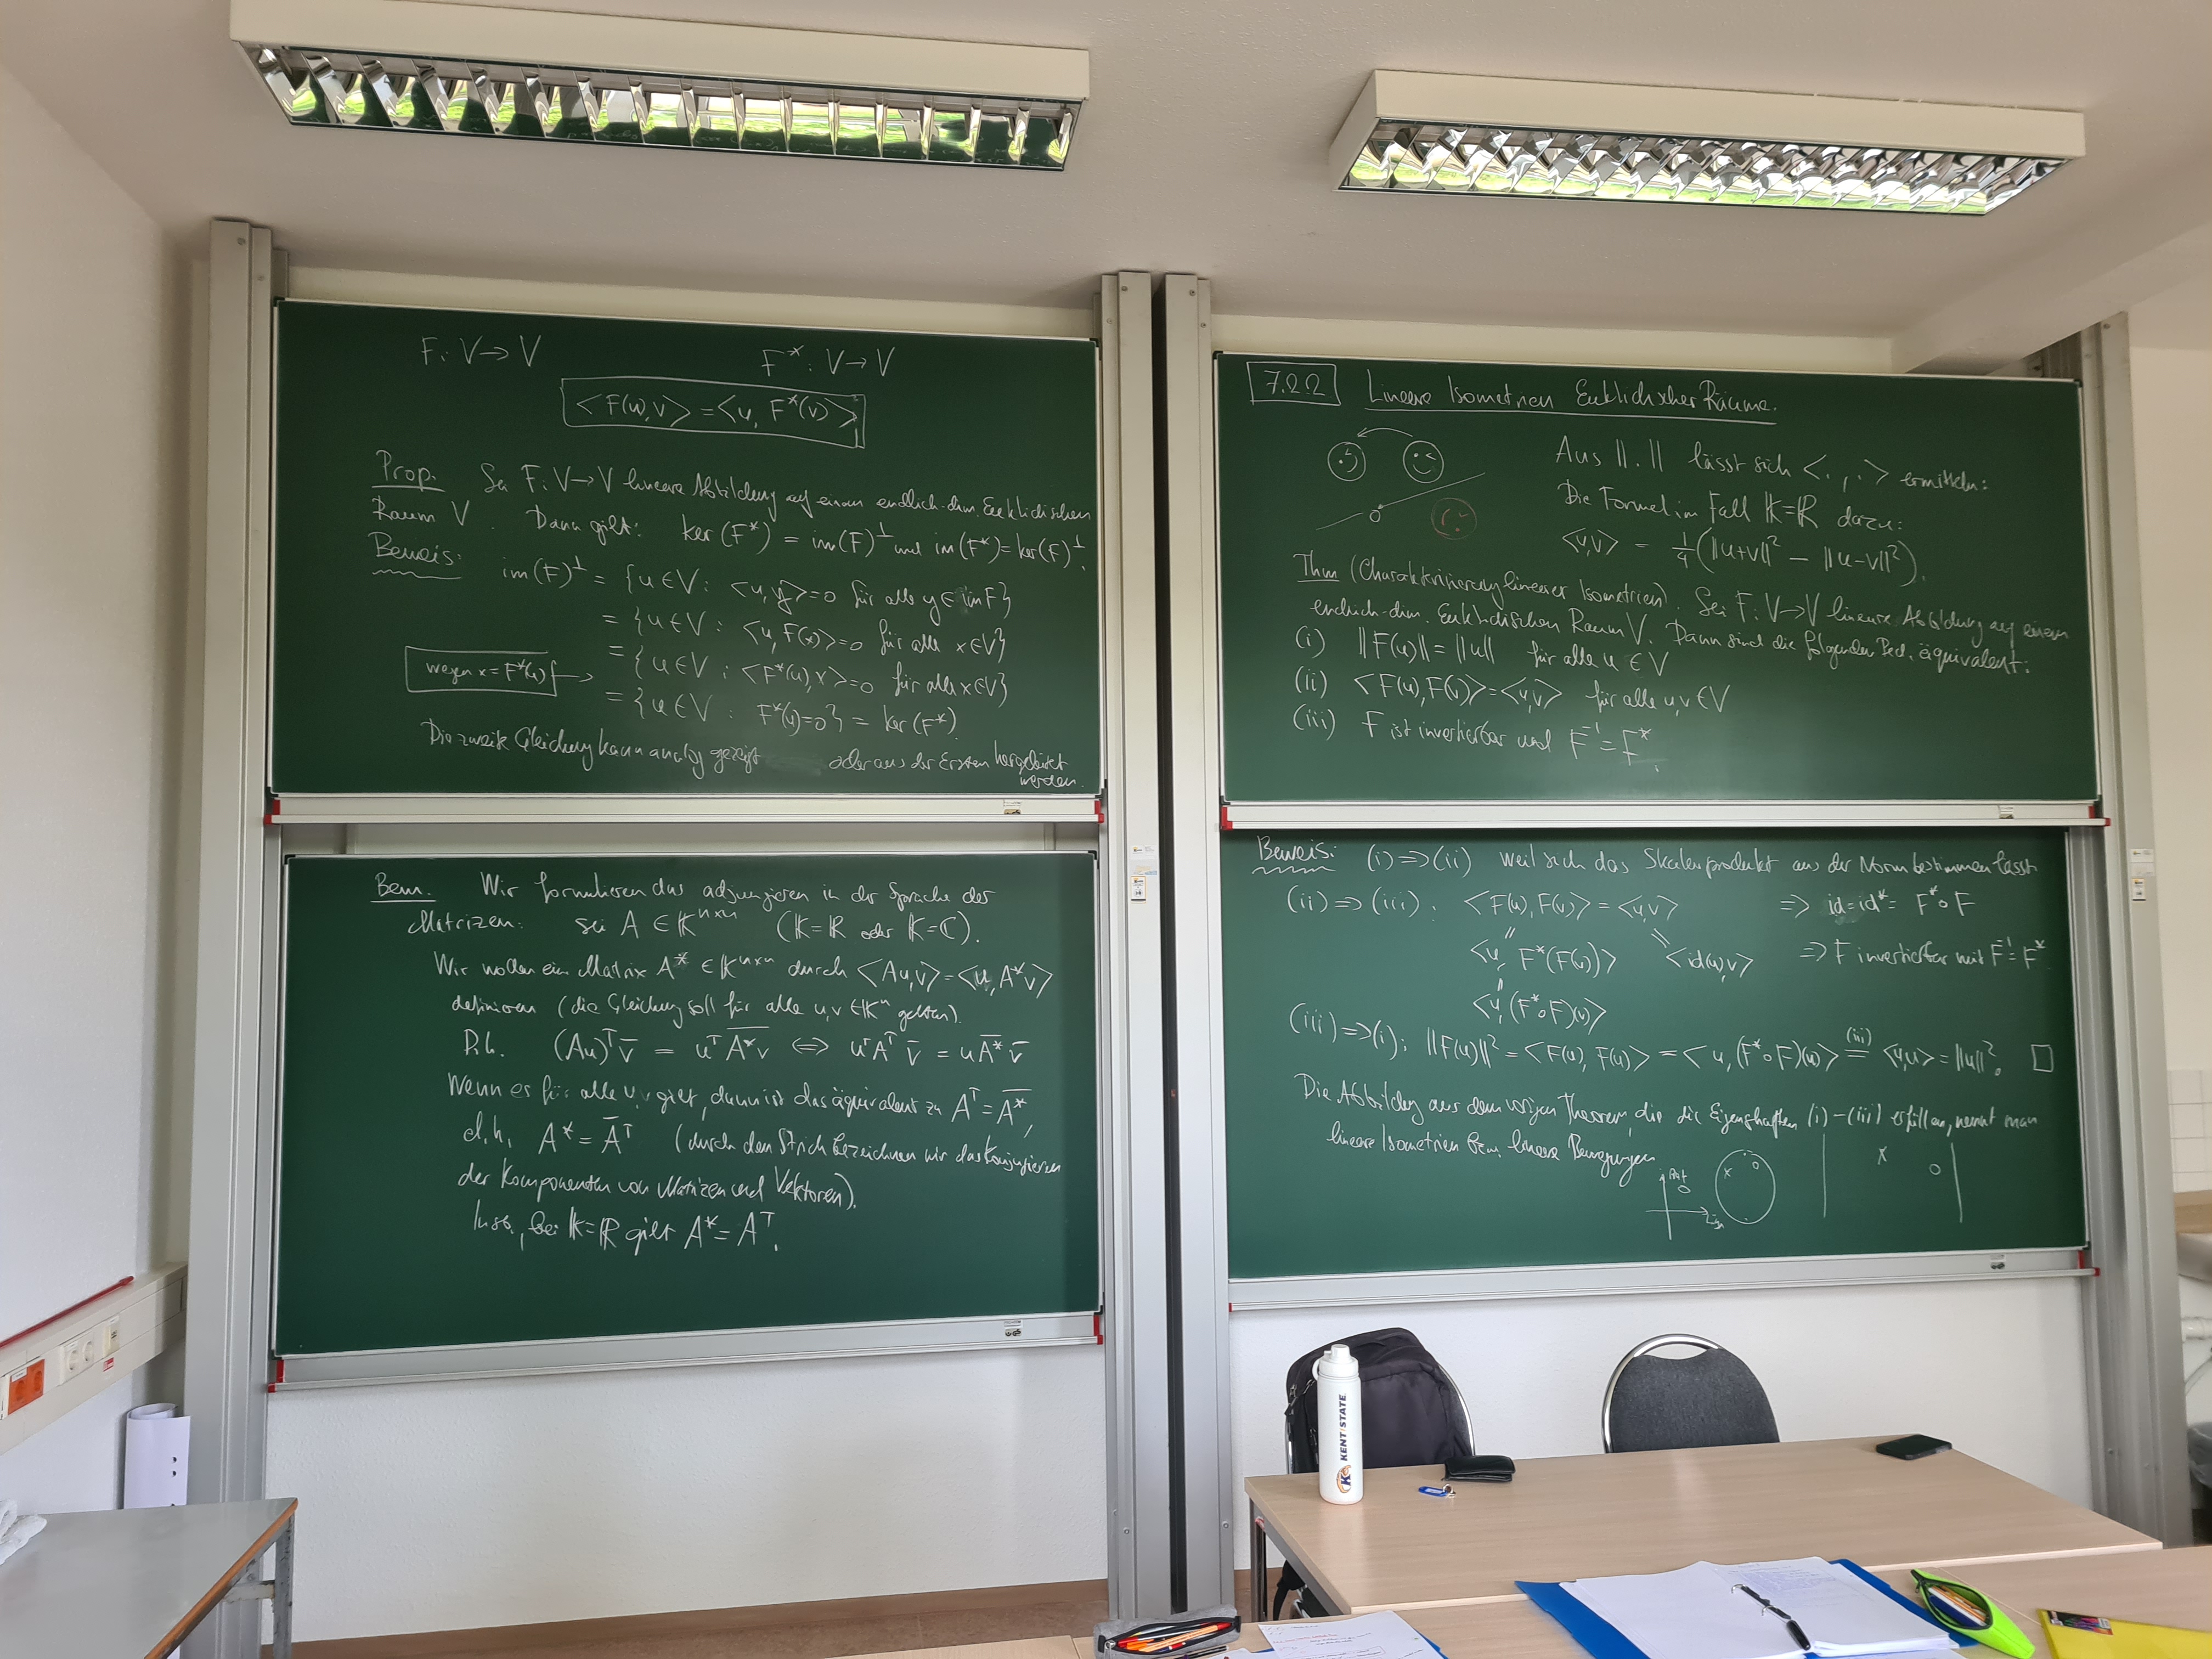 F: V → V F* : V → V
<F(u),v> = <u, F*(v)>
Prop. Sei F: V → V lineare Abbildung auf einem endlich-dim. Euklidischen
Raum V. Dann gilt: ker(F*) = im(F)^⊥ und im(F*) = ker(F)^⊥.
Beweis: im(F)^⊥ = {u ∈ V : <u,y> = 0 für alle y ∈ im F}
= {u ∈ V : <u, F(x)> = 0 für alle x ∈ V}
= {u ∈ V : <F*(u), x> = 0 für alle x ∈ V}
wegen x = F*(u) → = {u ∈ V : F*(u) = 0} = ker(F*).
Die zweite Gleichung kann analog gezeigt oder aus der Ersten hergeleitet
werden.
Bem. Wir formulieren das adjungieren in der Sprache der
Matrizen: sei A ∈ 𝕂^{n×n} (𝕂=ℝ oder 𝕂=ℂ).
Wir wollen ein Matrix A* ∈ 𝕂^{n×n} durch <Au,v> = <u,A*v>
definieren (die Gleichung soll für alle u,v ∈ 𝕂^n gelten).
D.h. (Au)^T v̄ = u^T \overline{A*v} ⟺ u^T A^T v̄ = u \overline{A*} v̄
Wenn es für alle u,v gilt, dann ist das äquivalent zu A^T = \overline{A*},
d.h. A* = Ā^T (durch den Strich bezeichnen wir das Konjugieren
der Komponenten von Matrizen und Vektoren).
Insb., bei 𝕂=ℝ gilt A* = A^T.
7.2.2 Lineare Isometrien Euklidischer Räume.
Aus ||.|| lässt sich <.,.> ermitteln:
Die Formel im Fall 𝕂=ℝ dazu:
<u,v> = 1/4 (||u+v||² − ||u−v||²).
0
Thm (Charakterisierung linearer Isometrien). Sei F: V → V lineare Abbildung auf einem
endlich-dim. Euklidischen Raum V. Dann sind die folgenden Bed. äquivalent:
(i) ||F(u)|| = ||u|| für alle u ∈ V
(ii) <F(u),F(v)> = <u,v> für alle u,v ∈ V
(iii) F ist invertierbar und F^{-1} = F*.
Beweis: (i) ⟹ (ii) weil sich das Skalarprodukt aus der Norm bestimmen lässt
(ii) ⟹ (iii): <F(u), F(v)> = <u,v> ⟹ id = id* = F*∘F
|| ||
<u, F*(F(v))> <id(u),v> ⟹ F invertierbar mit F^{-1} = F*
||
<u, (F*∘F)(v)>
(iii) ⟹ (i): ||F(u)||² = <F(u), F(u)> = <u, (F*∘F)(u)> (iii)= <u,u> = ||u||². □
Die Abbildung aus dem vorigen Theorem, die die Eigenschaften (i)−(iii) erfüllen, nennt man
lineare Isometrien bzw. lineare Bewegungen
x o
x o
KENT STATE